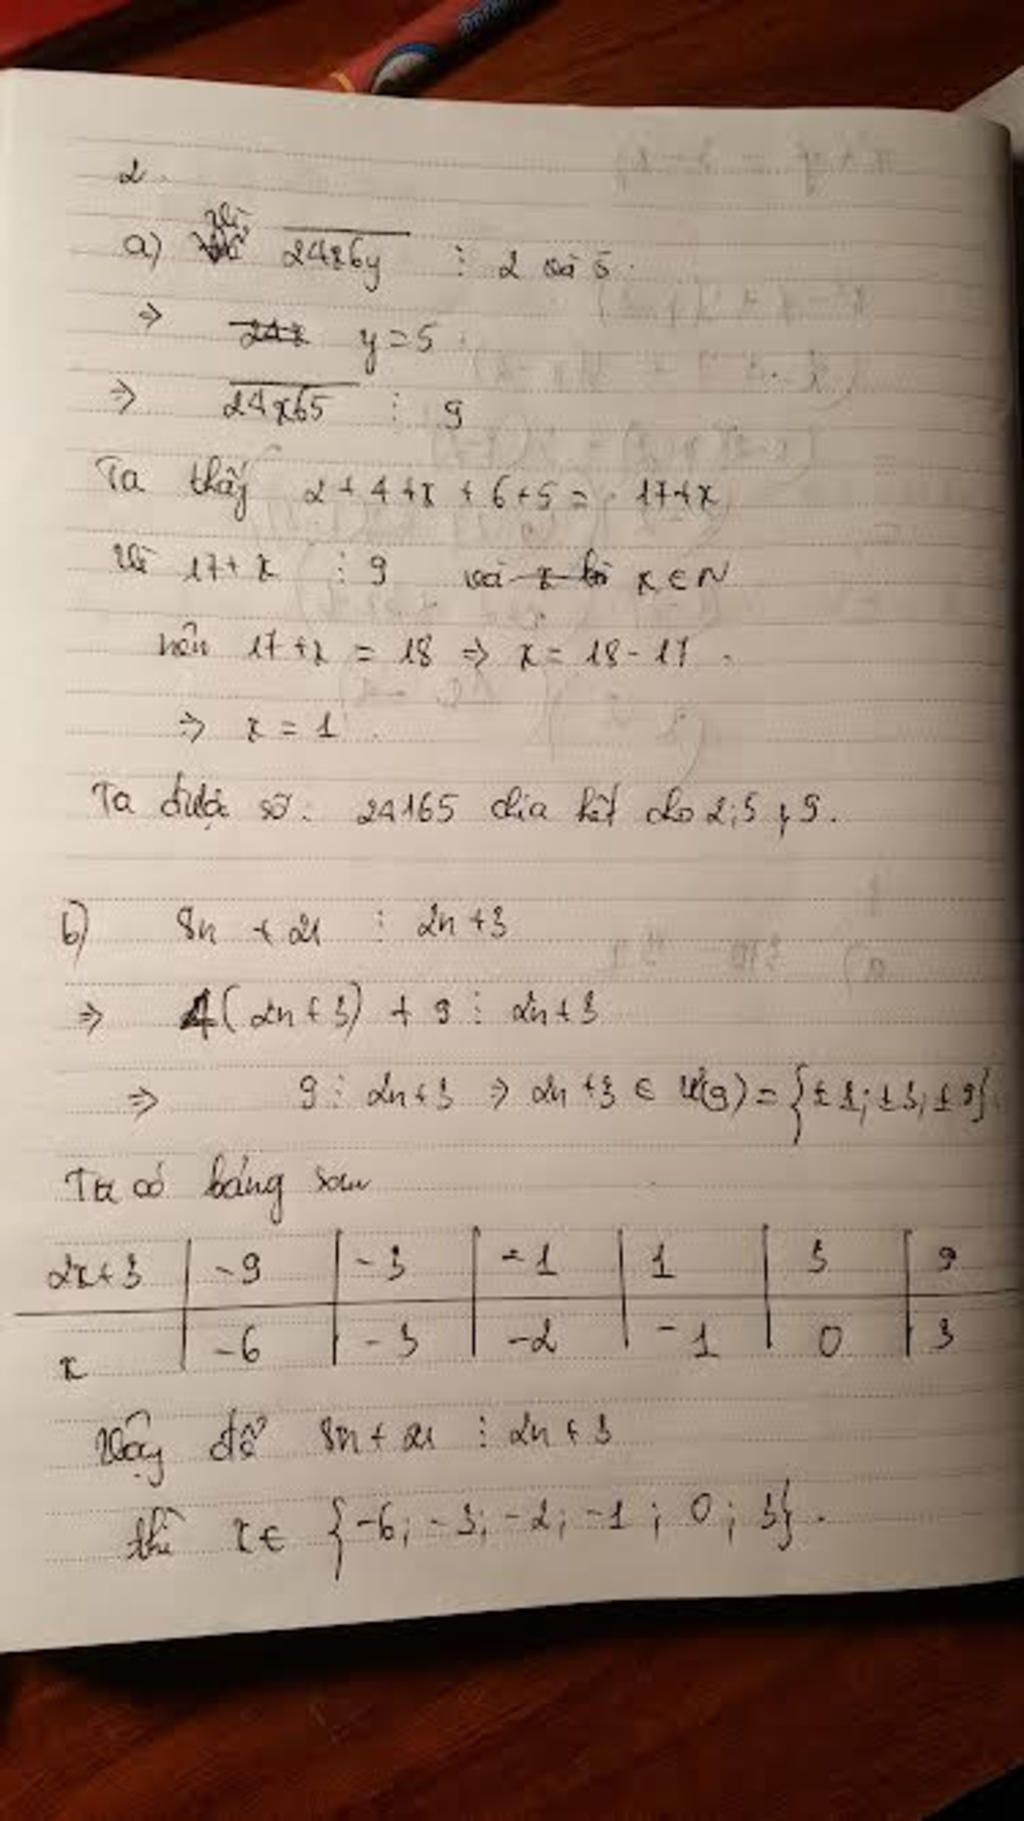 2.
a) Vì 24x6y ⋮ 2 và 5.
⇒ y = 5
⇒ 24x65 ⋮ 9
Ta thấy 2 + 4 + x + 6 + 5 = 17 + x
Vì 17 + x ⋮ 9 và x ∈ N
nên 17 + x = 18 ⇒ x = 18 - 17.
⇒ x = 1.
Ta được số: 24165 chia hết cho 2; 5; 9.
b) 8n + 21 ⋮ 2n + 3
⇒ 4(2n + 3) + 9 ⋮ 2n + 3
⇒ 9 ⋮ 2n + 3 ⇒ 2n + 3 ∈ Ư(9) = {±1; ±3; ±9}.
Ta có bảng sau
2x + 3 | -9 | -3 | -1 | 1 | 3 | 9
x | -6 | -3 | -2 | -1 | 0 | 3
Vậy để 8n + 21 ⋮ 2n + 3
thì x ∈ {-6; -3; -2; -1; 0; 3}.